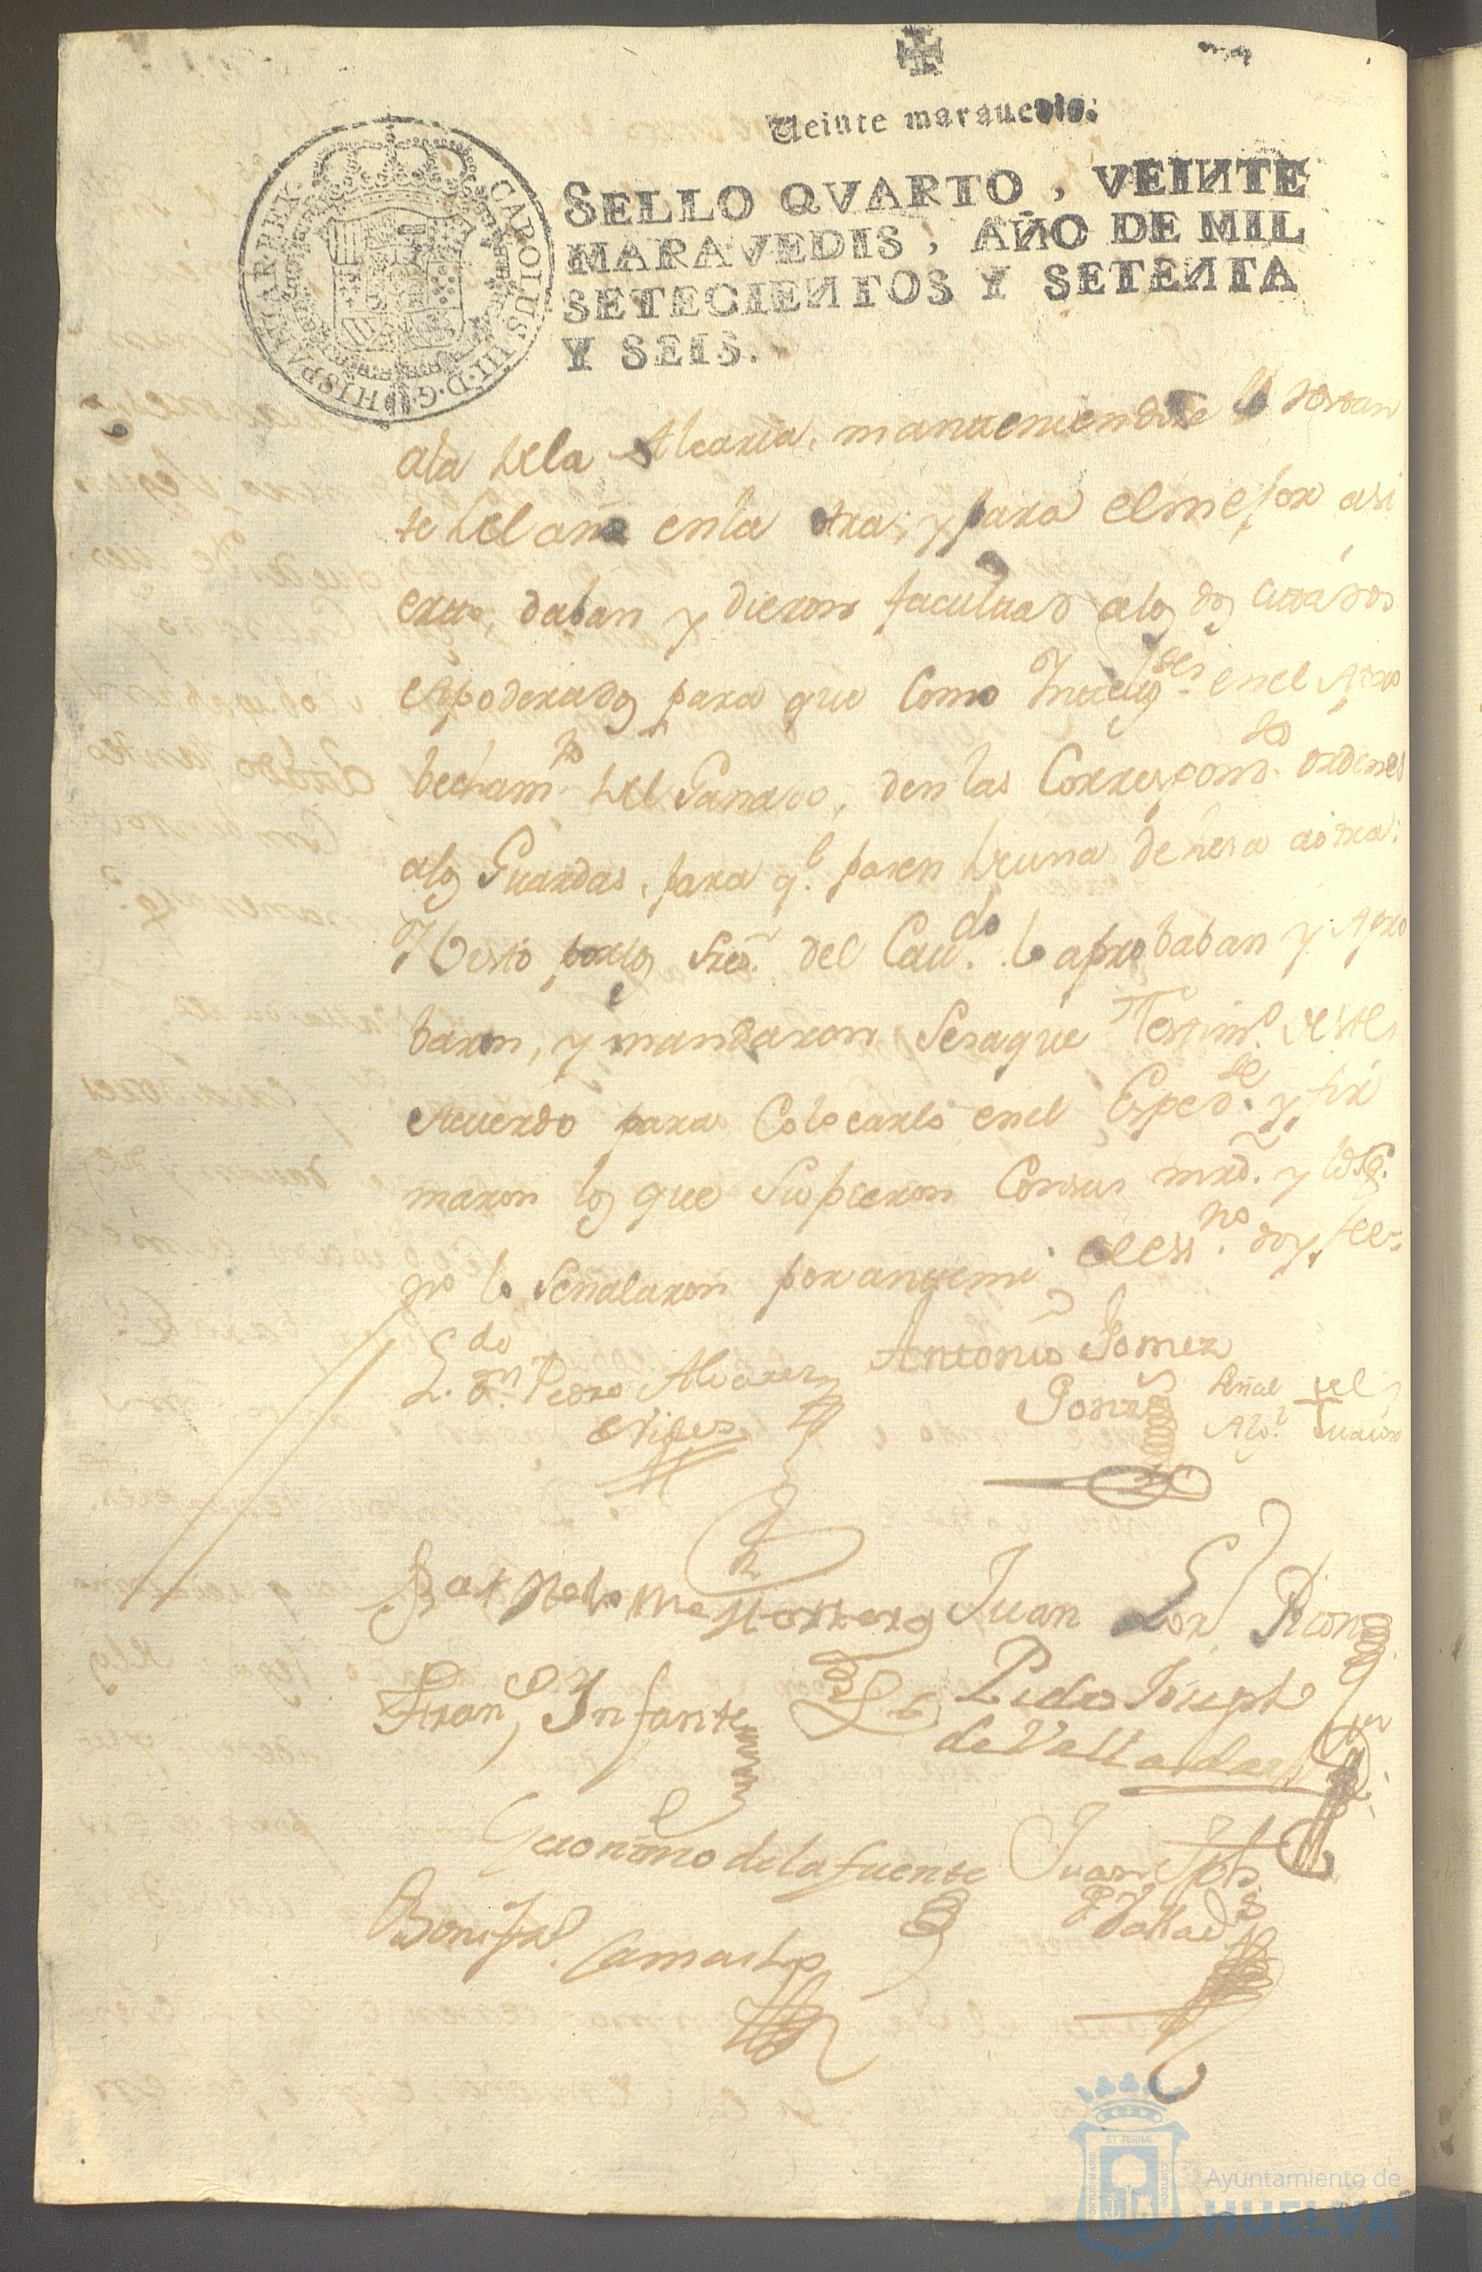 Veinte maravedis.
CAROLUS III D.G. HISPANIAR. REX.
SELLO QVARTO, VEINTE
MARAVEDIS, AÑO DE MIL
SETECIENTOS Y SETENTA
Y SEIS.
ala dela Alcaria, manteniendose lo restan
te del año enla otra; y para elmejor asi
erto, daban y dieron facultad alos dos citados
Apoderados para que como Intelig.tes enel Apro
becham.to del Ganado, den las Correspond.tes ordenes
alos Guardas, para q.e pasen deuna dehesa aotra:
Y Visto porlos Sres. del Cav.do lo aprobaban y Apro
baron, y mandaron Sesaque Testim.o deste
Acuerdo para Colocarlo enel Exped.te y fir
maron los que Supieron Consus mrd.s y los q.e
no lo Señalaron por antemi el ess.no doy fee=
L.do Dn. Pedro Alvarez
Antonio Gomez
Gonz
Señal del
Juan Lor Picon
Fran.co Infante
Pedro Joseph
de Valladares
Geronimo dela fuente
Juan Jph
Vallad.s
Bonif.o Camacho
Ayuntamiento de
HUELVA